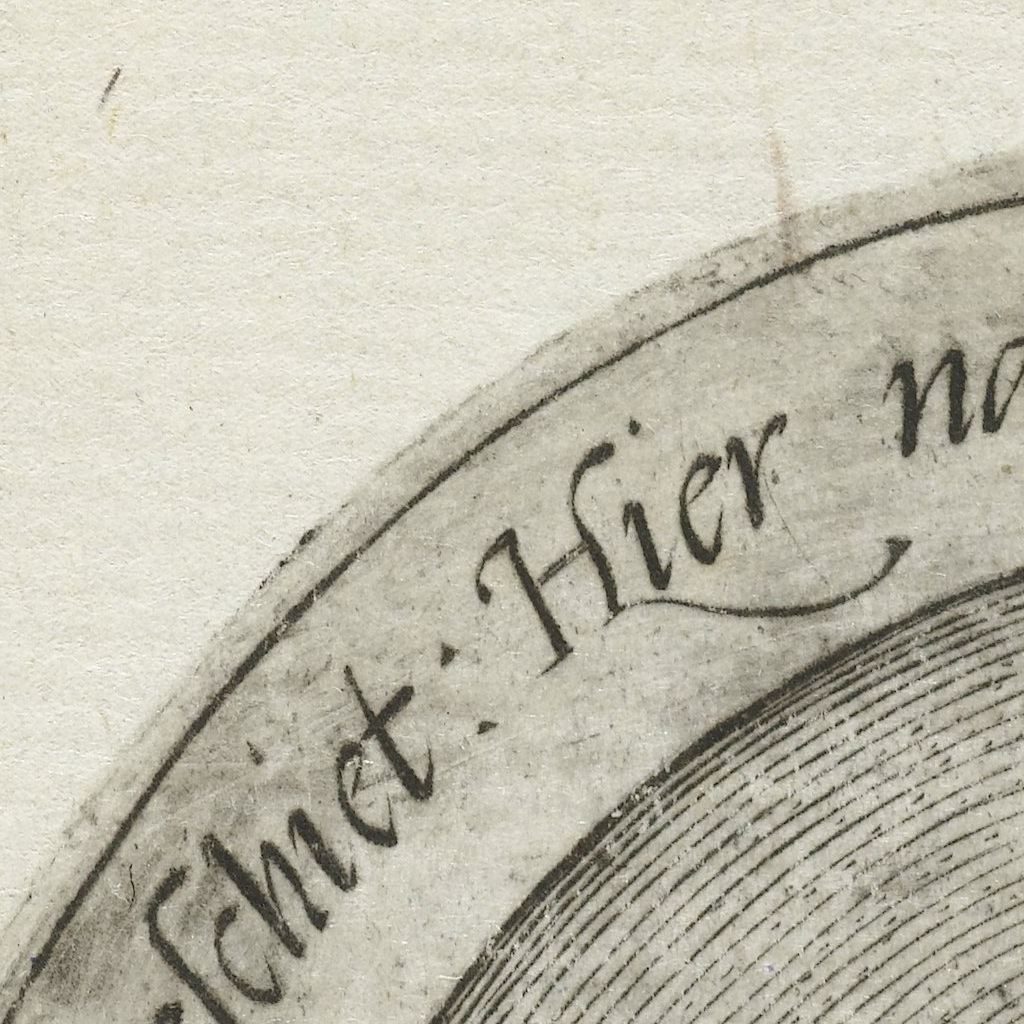 ſchiet: Hier na